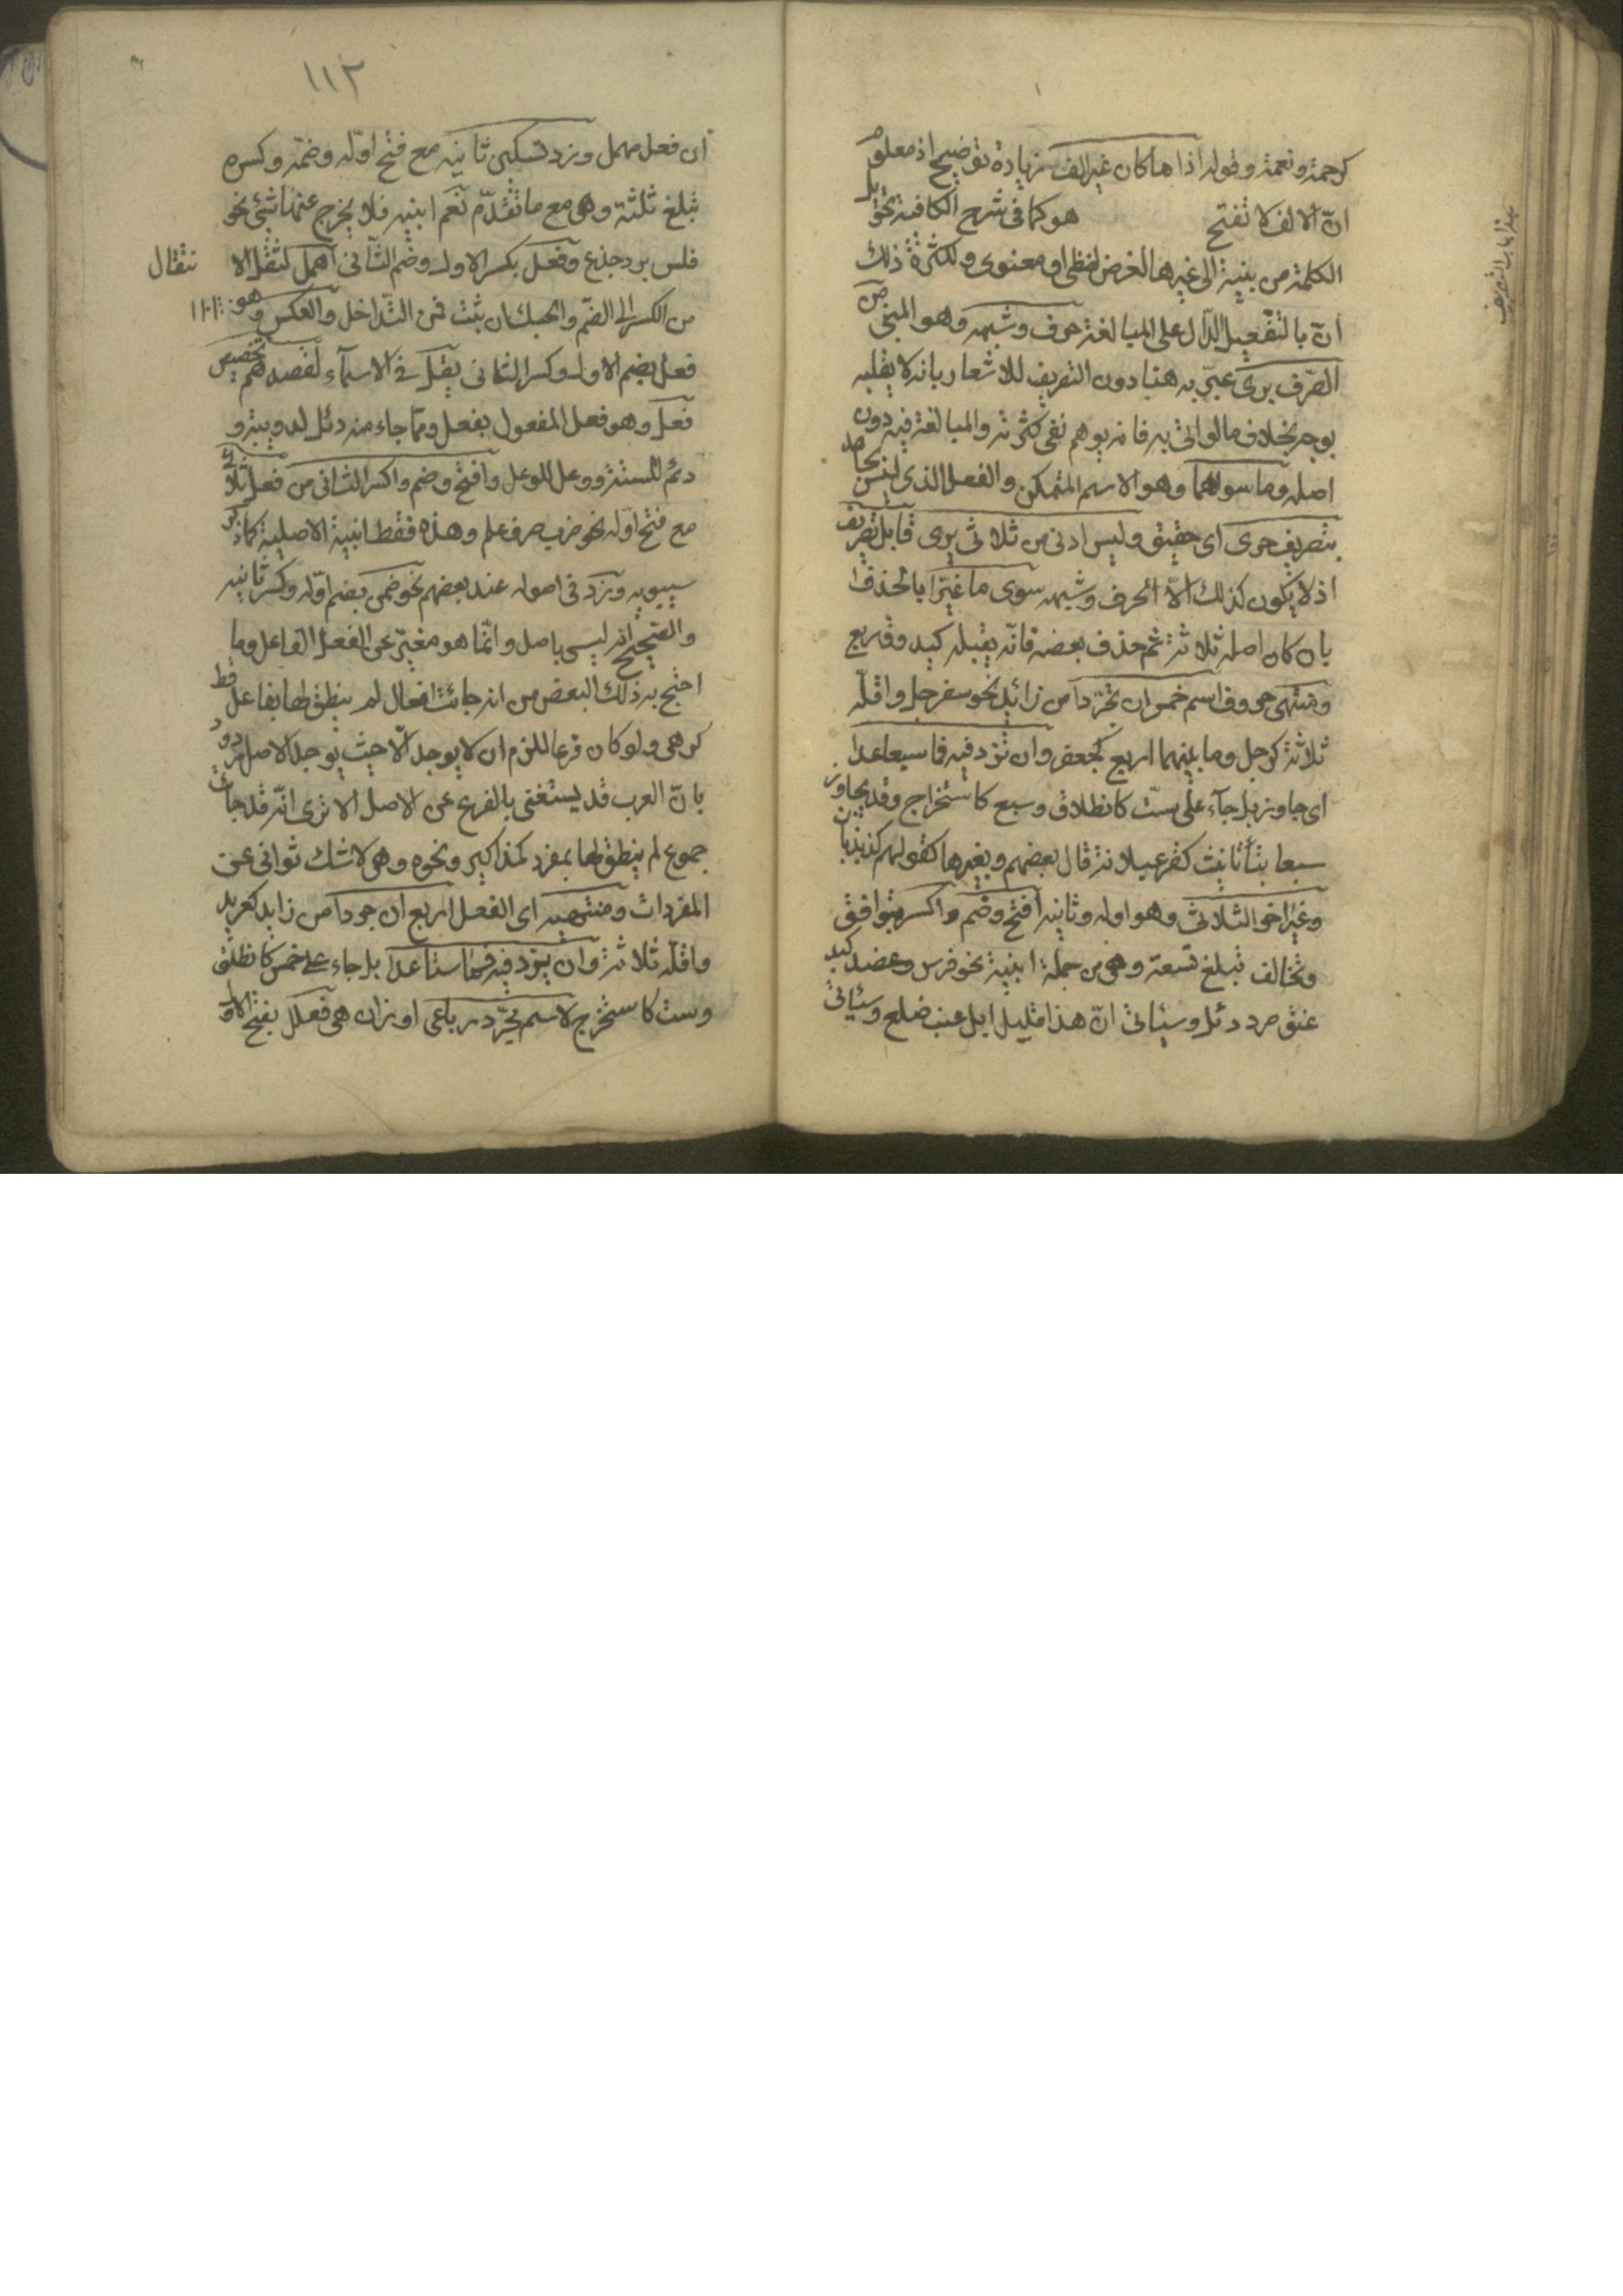 كرحمة ونعمة وقوله اذا ما كان غير الف زيادة توضيح اذ معلوم
انّ الالف لا تفتح هو كما فى شرح الكافية تحويل
الكلمة من بنية الى غيرها لغرض لفظى او معنوى ولكثرة ذلك
اتى بالتفعيل الدّال على المبالغة حرف وشبهه وهو المبنى من
الصّرف برى عبّر به هنا دون التصريف للاشعار بانه لا يقبله
بوجه بخلاف ما لو اتى به فانه يوهم نفى كثرته والمبالغة فيه دون
اصله وما سواهما وهو الاسم المتمكن والفعل الذى ليس بجامد
بتصريف حرى اى حقيق وليس ادنى من ثلاثى يرى قابل تصريف
اذ لا يكون كذلك الا الحرف وشبهه سوى ما غيّرا بالحذف
بان كان اصله ثلاثة ثم حذف بعضه فانّه يقبله كيد وق وبع
ومنتهى حروف اسم خمس ان تجرّدا من زائد نحو سفرجل واقلّه
ثلاثة كرجل وما بينهما اربع كجعفر وان تزد فيه فما سبعا عدا
اى جاوز بل جآء على ستّ كانطلاق وسبع كاستخراج وقد يجاوز
سبعا بتأ تانيث كقرعبلانة قال بعضهم وبغيرها كقولهم كذبذبان
وغير اخر الثلاثى وهو اوله وثانيه افتح وضم واكسر بتوافق
وتخالف تبلغ تسعة وهى من جملة ابنية نحو فرس وعضد كبد
عنق صرد دئل وسيأتى انّ هذا قليل ابل عنب ضلع وسيأتى
١١٢
ان فعل مهمل وزد تسكين ثانيه مع فتح اوّله وضمّه وكسره
تبلغ ثلثة وهى مع ما تقدّم تعم ابنيه فلا يخرج عنها شئ نحو
فلس برد جذع وفعل بكسر الاول وضم الثّانى اهمل لثقل الا نتقال
من الكسر الى الضّم والحبك ان ثبت فمن التّداخل والعكس وهو
فعل بضم الاول وكسر الثانى يقلّ فى الاسمآء لقصدهم تخصيص
فعل وهو فعل المفعول بفعل وممّا جاء منه دئل لدويبة و
دئم للسته ووعل للوعل وافتح وضم واكسر الثانى من فعل ثلاثى
مع فتح اوّله نحو ضرب صرف علم وهذه فقط ابنية الاصلية كما ذكر
سيبويه وزد فى اصوله عند بعضهم نحو ضمن بضم اوّله وكسر ثانيه
والصّحيح انه ليس باصل وانّما هو مغيّر عن الفعل الفاعل وما
احتج به ذلك البعض من انه جائت افعال لم ينطق لها بفاعل قط
كزهى ولو كان فرعا للزم ان لا يوجد الّا حيث يوجد الاصل مردود
بانّ العرب قد يستغنى بالفرع عن الاصل الا ترى انّه قد جائت
جموع لم ينطق لها بمفرد كمذاكير ونحوه وهى لا شك ثوانى عن
المفردات ومنتهيه اى الفعل اربع ان جردا من زايد كعربد
واقلّه ثلاثة وان يزد فيه فما ستا عدا بل جاء على خمس كانطلق
وست كاستخرج لاسم مجرّد رباعى اوزان هى فعلل بفتح الاول